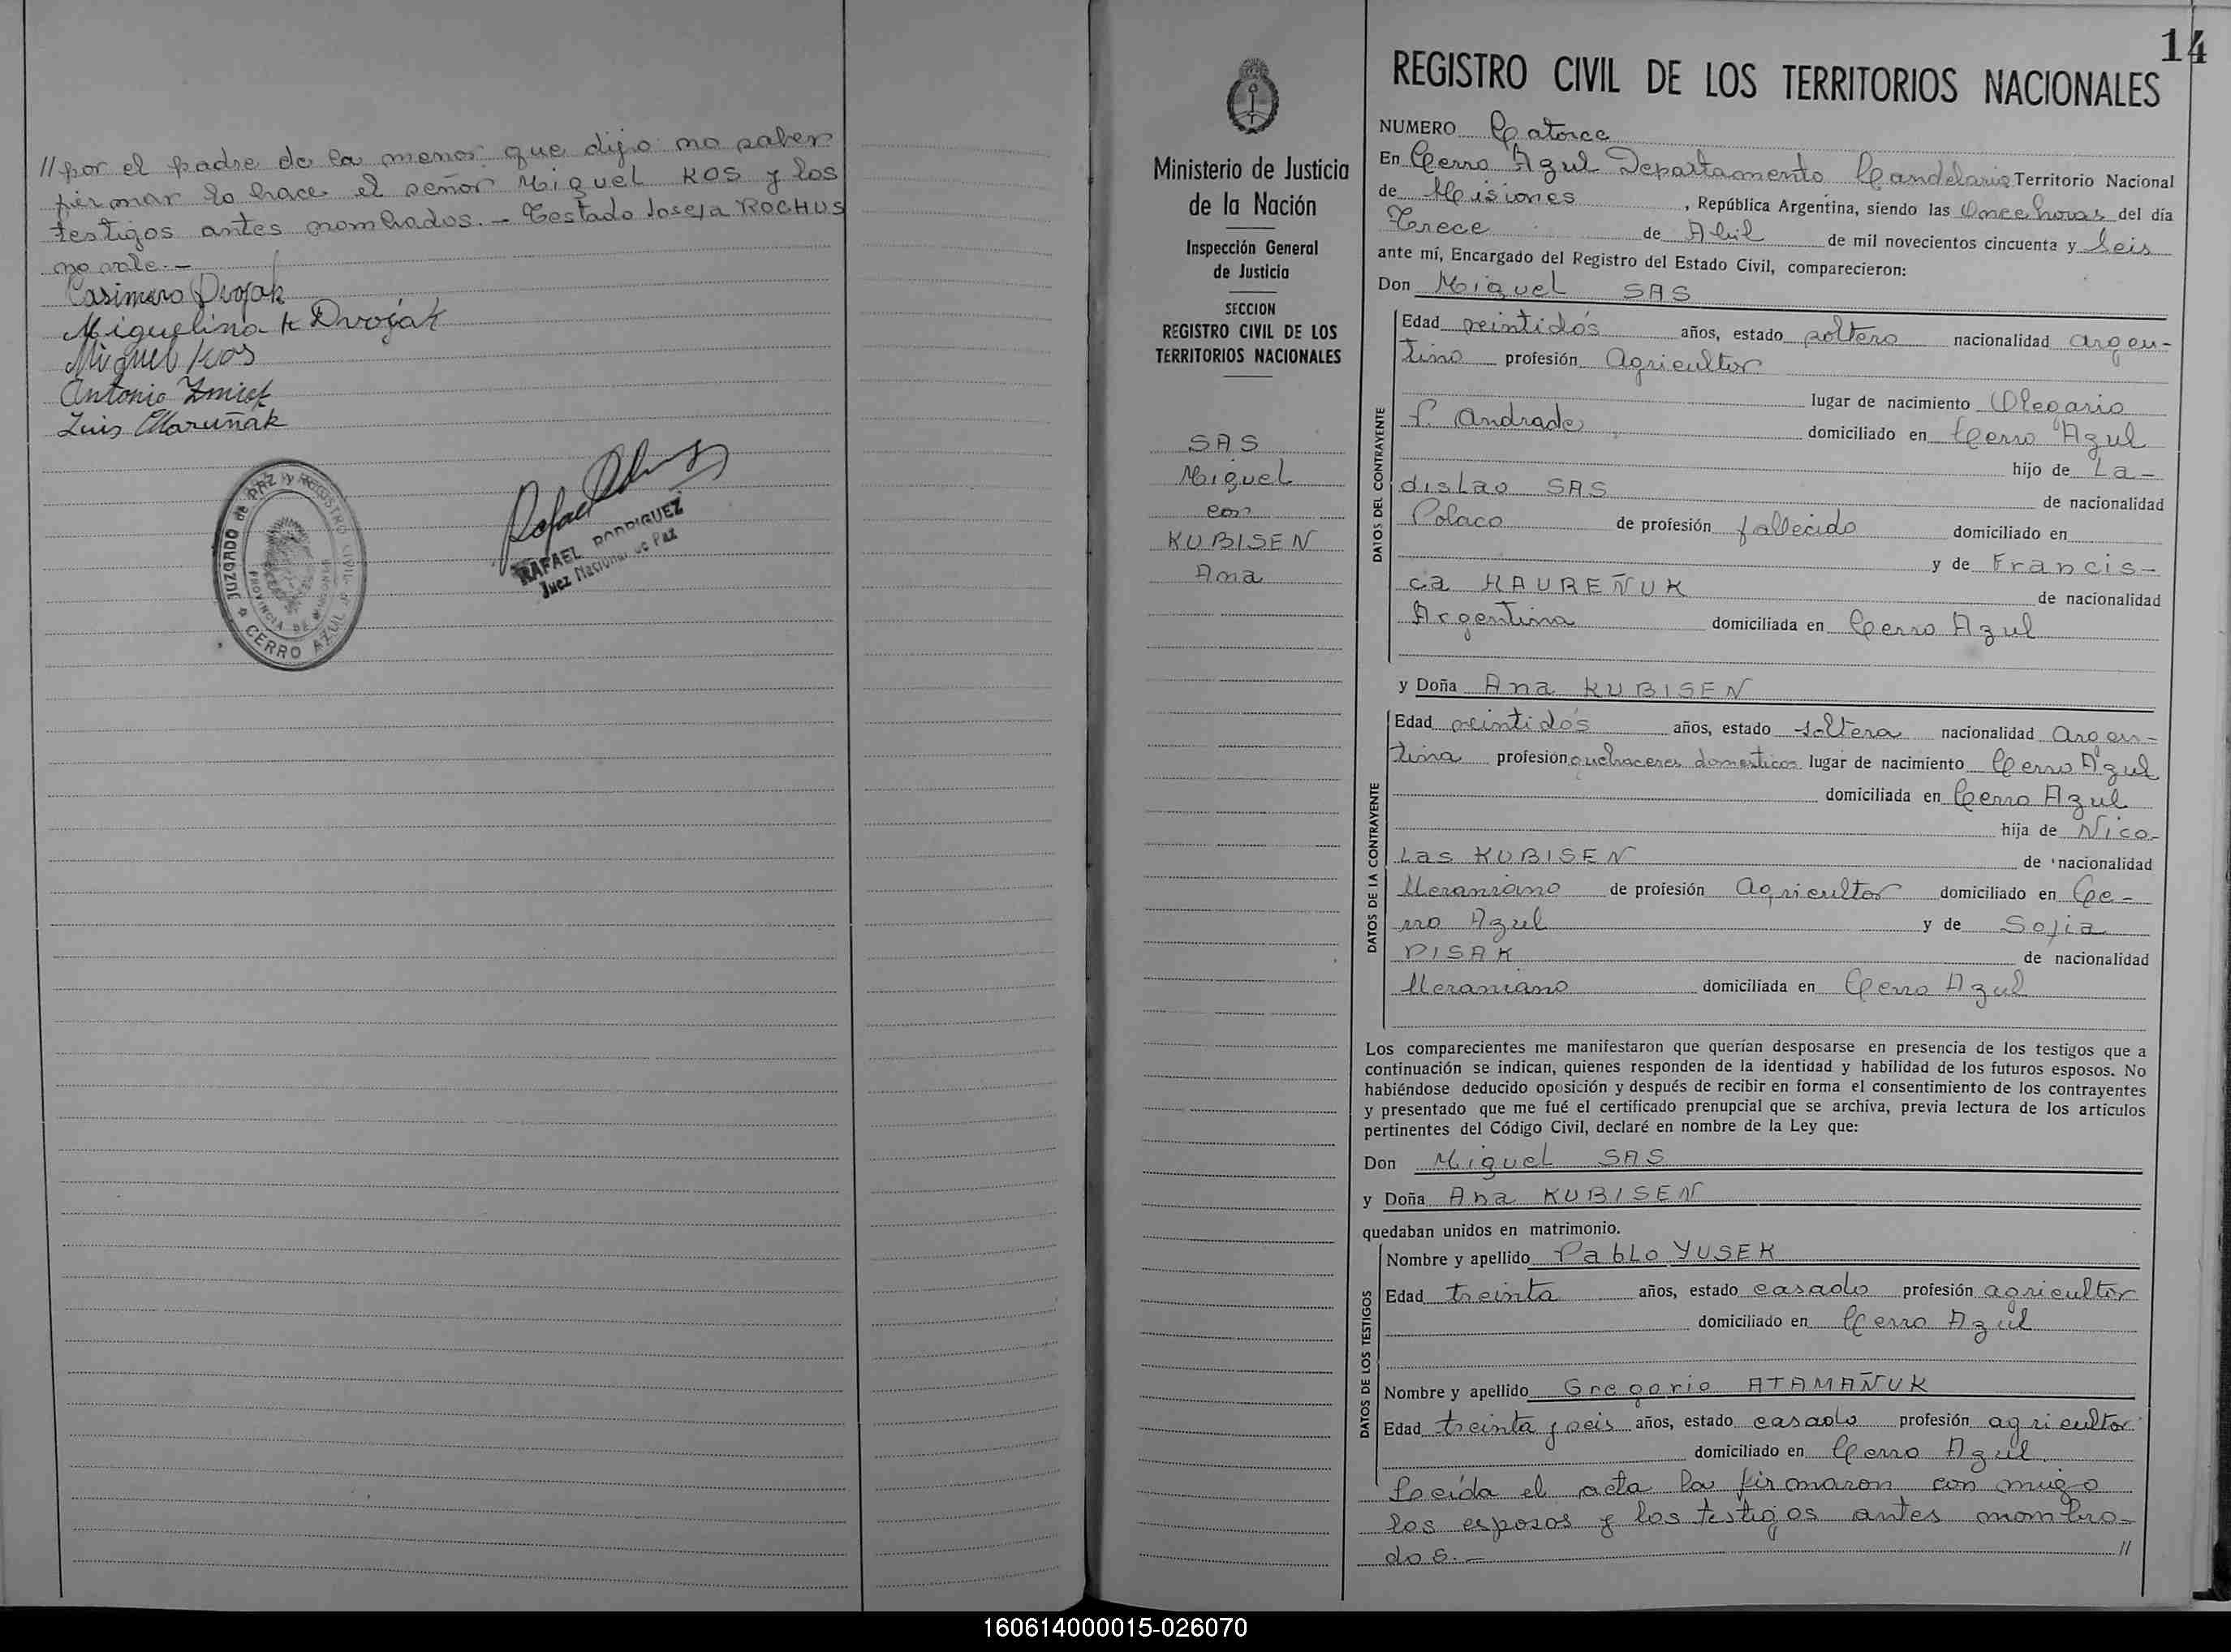 // por el padre de la menor que dijo no saber
firmar lo hace el señor Miguel KOS y los
testigos antes nombrados.- Testado Josefa ROCHUS
no vale.-
Casimero Dvojak
Miguelina K Dvoják
Miguel Kos
Antonio Zmick
Luis Maruñak
JUZGADO de PAZ y REGISTRO CIVIL
PROVINCIA DE MISIONES
CERRO AZUL
RAFAEL RODRIGUEZ
Juez Nacional de Paz
14
Ministerio de Justicia
de la Nación
Inspección General
de Justicia
SECCION
REGISTRO CIVIL DE LOS
TERRITORIOS NACIONALES
SAS
Miguel
con
KUBISEN
Ana
REGISTRO CIVIL DE LOS TERRITORIOS NACIONALES
NUMERO Catorce
En Cerro Azul Departamento Candelaria Territorio Nacional
de Misiones, República Argentina, siendo las Once horas del día
Trece de Abril de mil novecientos cincuenta y Seis
ante mí, Encargado del Registro del Estado Civil, comparecieron:
Don Miguel SAS
DATOS DEL CONTRAYENTE
Edad veintidós años, estado soltero nacionalidad argen-
tino profesión Agricultor
lugar de nacimiento Olegario
V. Andrade domiciliado en Cerro Azul
hijo de La-
dislao SAS de nacionalidad
Polaco de profesión fallecido domiciliado en
y de Francis-
ca HAUREÑUK de nacionalidad
Argentina domiciliada en Cerro Azul
y Doña Ana KUBISEN
DATOS DE LA CONTRAYENTE
Edad veintidós años, estado soltera nacionalidad Argen-
tina profesión quehaceres domesticos lugar de nacimiento Cerro Azul
domiciliada en Cerro Azul
hija de Nico-
las KUBISEN de nacionalidad
Ucraniano de profesión Agricultor domiciliado en Ce-
rro Azul y de Sofia
PISAK de nacionalidad
Ucraniano domiciliada en Cerro Azul
Los comparecientes me manifestaron que querían desposarse en presencia de los testigos que a
continuación se indican, quienes responden de la identidad y habilidad de los futuros esposos. No
habiéndose deducido oposición y después de recibir en forma el consentimiento de los contrayentes
y presentado que me fué el certificado prenupcial que se archiva, previa lectura de los artículos
pertinentes del Código Civil, declaré en nombre de la Ley que:
Don Miguel SAS
y Doña Ana KUBISEN
quedaban unidos en matrimonio.
DATOS DE LOS TESTIGOS
Nombre y apellido Pablo YUSEK
Edad treinta años, estado casado profesión agricultor
domiciliado en Cerro Azul
Nombre y apellido Gregorio ATAMAÑUK
Edad treinta y seis años, estado casado profesión agricultor
domiciliado en Cerro Azul
Leída el acta la firmaron con migo
los esposos y los testigos antes nombra-
dos.- //
160614000015-026070